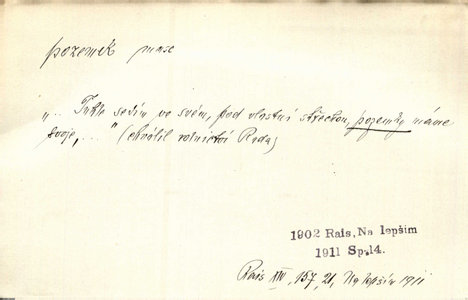 pozemek masc
„... Tuhle sedím ve svém, pod vlastní střechou, pozemky máme
svoje, ..." (chválil rolnictví
1902 Rais, Na lepším
1911 Sp.14.
Rais XIV, 157, 21, Na lepším 1911